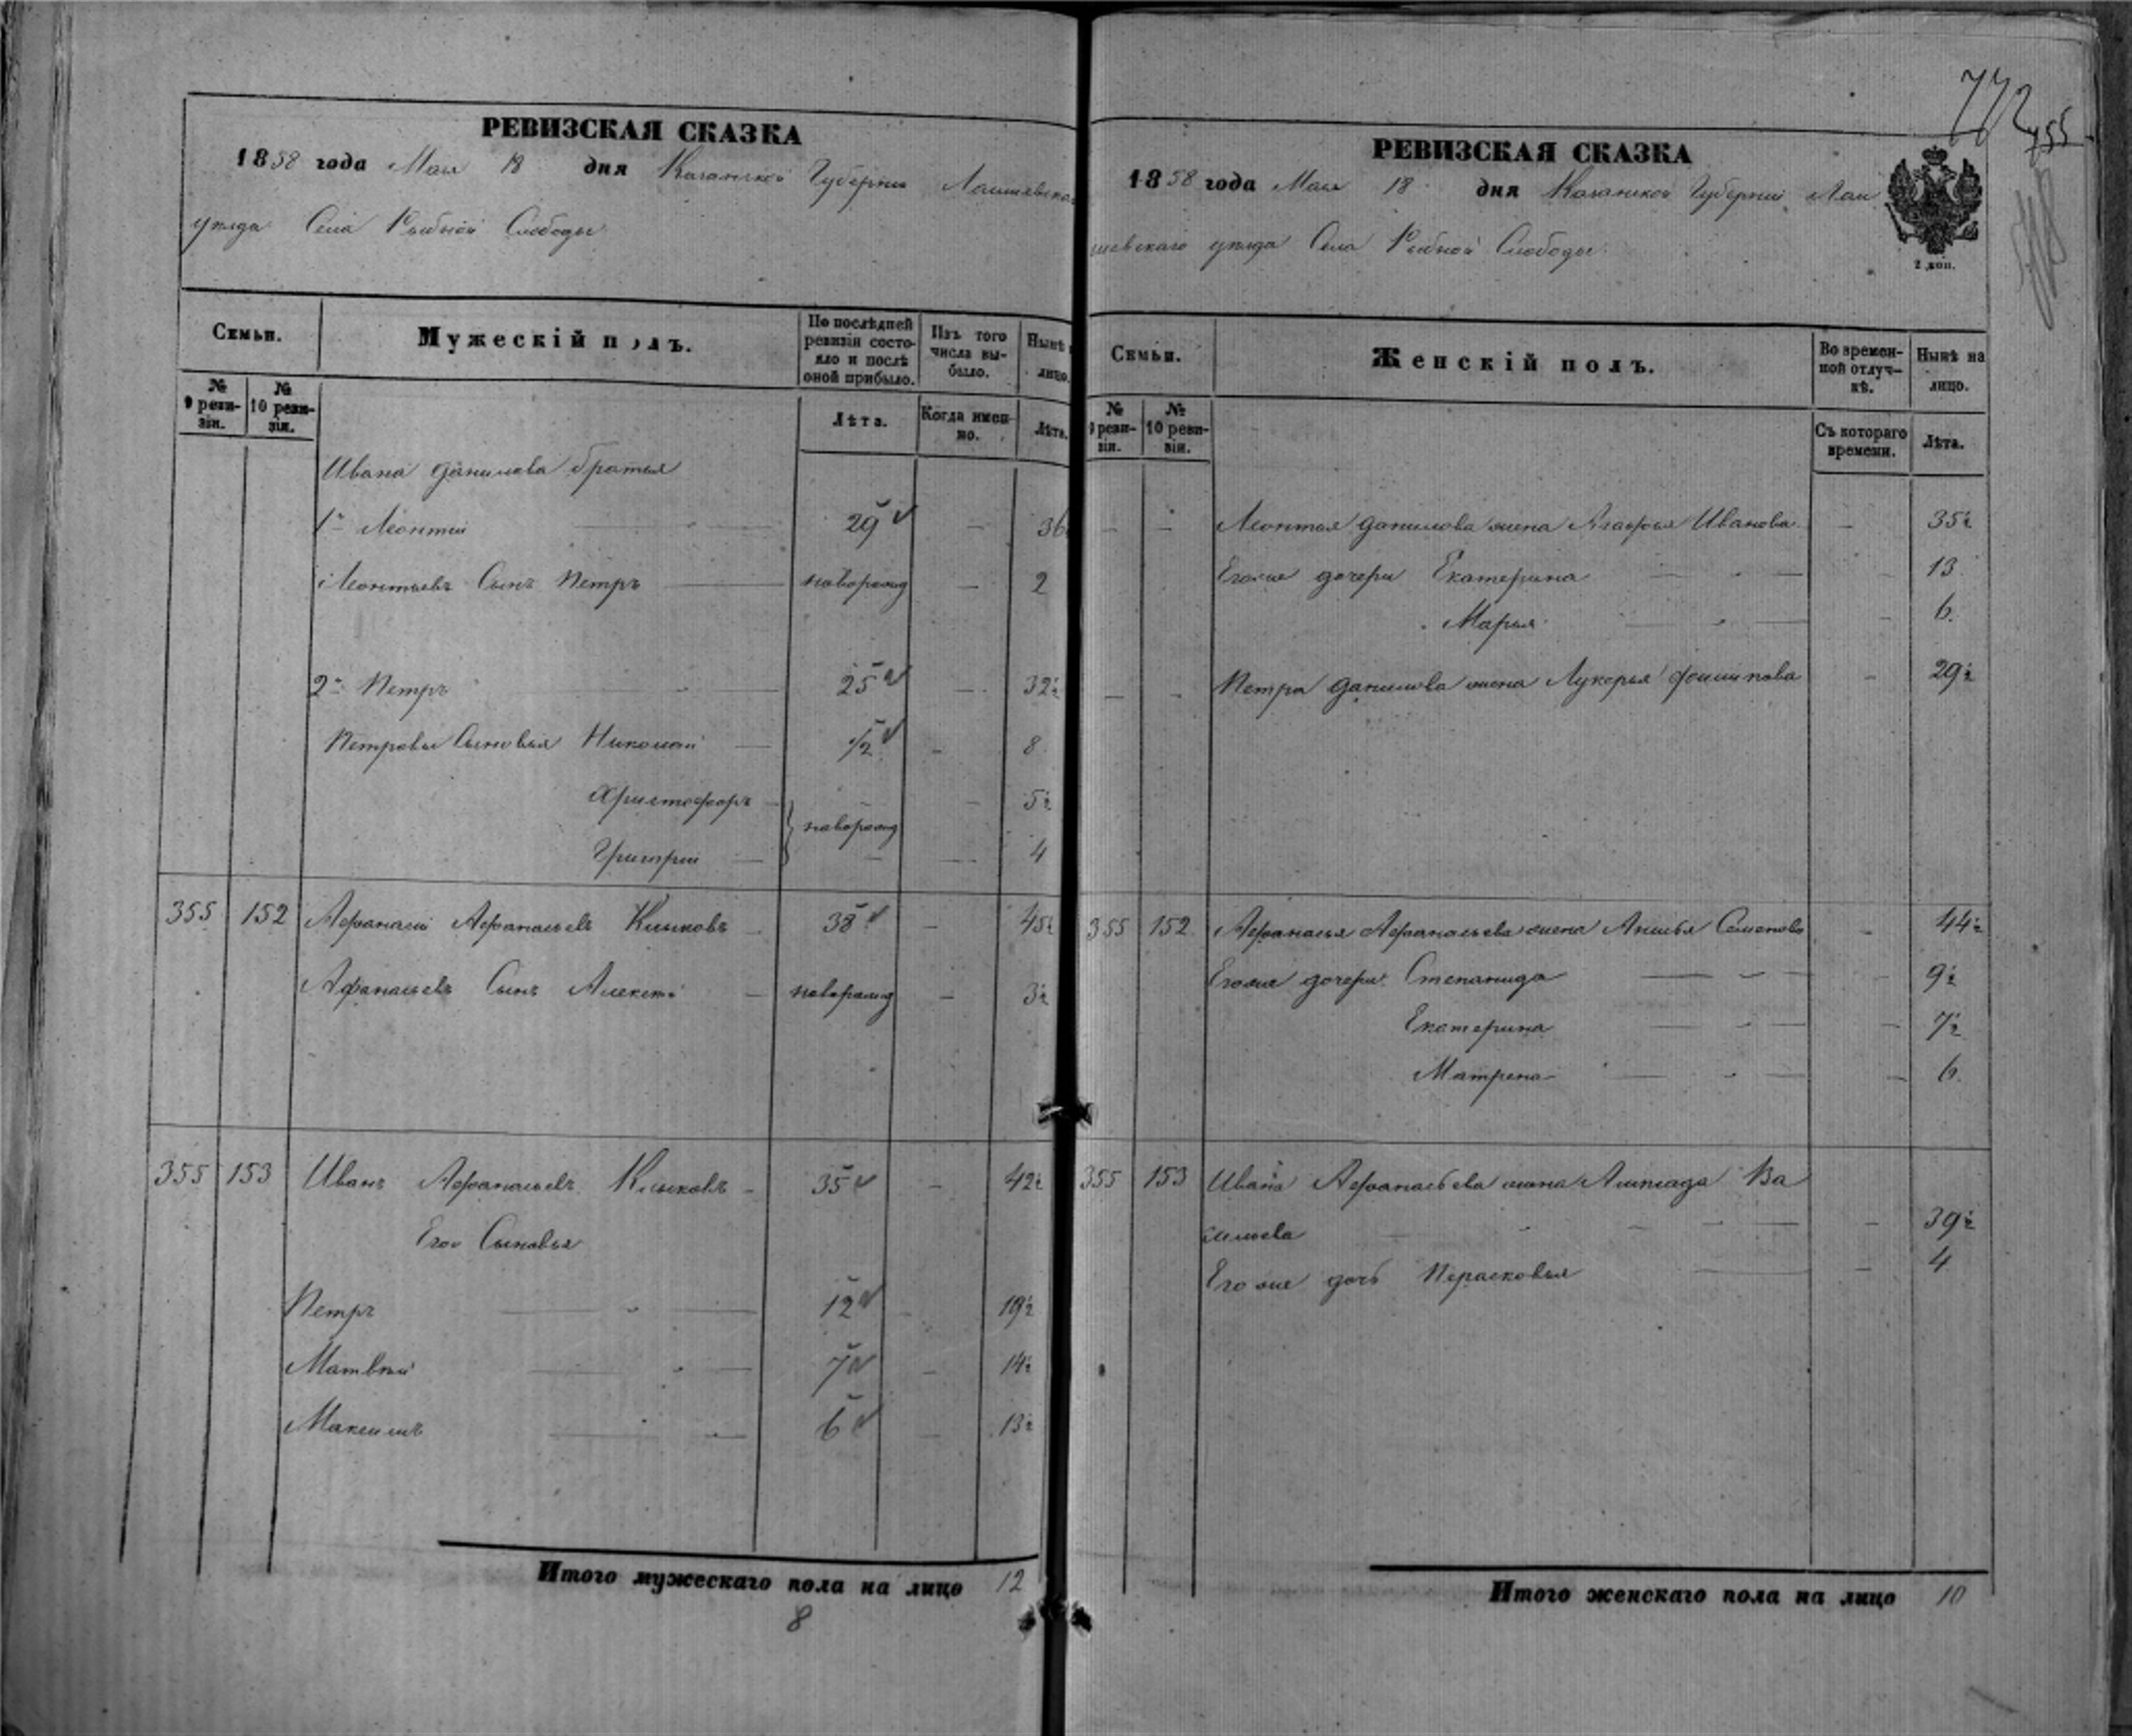 РЕВИЗСКАЯ СКАЗКА
1858 года Мая 18 дня Казанской Губернии Лаишевскаго
уезда Села Рыбной Слободы
Семьи.
Мужескій полъ.
По послѣдней ревизіи состояло и послѣ оной прибыло.
Изъ того числа выбыло.
Нынѣ на лицо.
№ 9 ревизіи.
№ 10 ревизіи.
Лѣта.
Когда именно.
Лѣта.
Ивана Данилова братья
1й Леонтій 29 — 36
Леонтьевъ Сынъ Петръ новорожд — 2
2й Петръ 25 — 32½
Петровы Сыновья Николай ½ — 8
Христофоръ — 5½
новорожд
Григорій — 4
355 152 Афанасій Афанасьевъ 38 — 45½
Афанасьевъ Сынъ Алексѣй — новорожд — 3½
355 153 Иванъ Афанасьевъ 35 — 42½
Его Сыновья
Петръ 12 — 19½
Матвѣй 7 — 14½
Максимъ 6 — 13½
Итого мужескаго пола на лицо 12
8
772
755
РЕВИЗСКАЯ СКАЗКА
1858 года Мая 18 дня Казанской Губерніи Лаи
шевскаго уезда Села Рыбной Слободы
2 коп.
Семьи.
Женскій полъ.
Во временной отлучкѣ.
Нынѣ на лицо.
№ 9 ревизіи.
№ 10 ревизіи.
Съ котораго времени.
Лѣта.
— — Леонтья Данилова жена Агафья Иванова — 35½
Егоже дочери Екатерина — 13
Марья — 6.
— — Петра Данилова жена Лукерья Филипова — 29½
355 152 Афанасья Афанасьева жена Анисья Семенова — 44½
Егоже дочери Степанида — 9½
Екатерина — 7½
Матрена — 6.
355 153 Ивана Афанасьева жена Ва
сильева — 39½
Егоже дочь Парасковья — 4
Итого женскаго пола на лицо 10